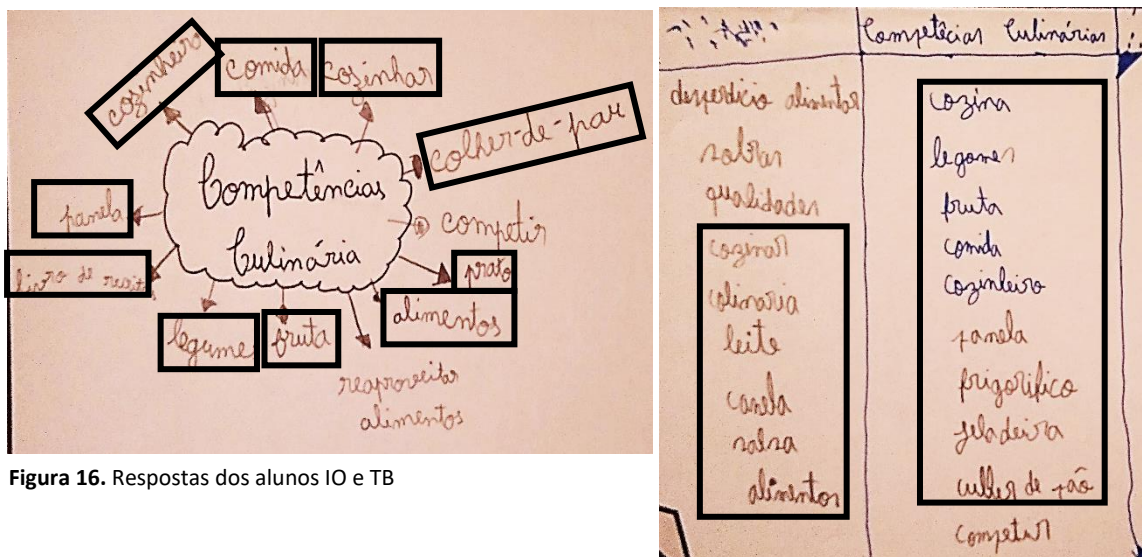 cozinheiro
comida
cozinhar
colher-de-pau
Competências
Culinária
panela
competir
prato
livro de receitas
alimentos
legumes
fruta
reaproveitar
alimentos
Figura 16. Respostas dos alunos IO e TB
Competêcias Culinárias
desperdicio alimentar
sobras
qualidades
cozinar
colinaria
leite
canela
salsa
alimentos
cozina
legomes
fruta
comida
cozinleiro
panela
frigorifico
jeladeira
culher de pão
competir